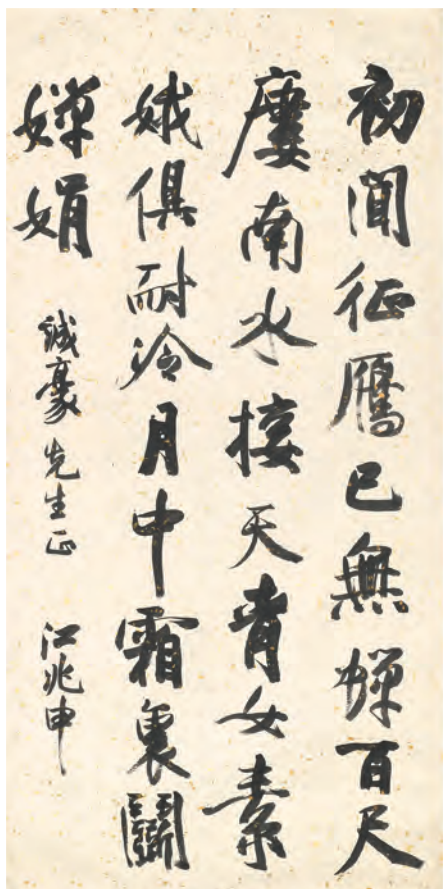 初聞征鴈已無蟬百尺
廔南水接天青女素
娥俱耐冷月中霜裏鬭
嬋娟 誠豪先生正 江兆申